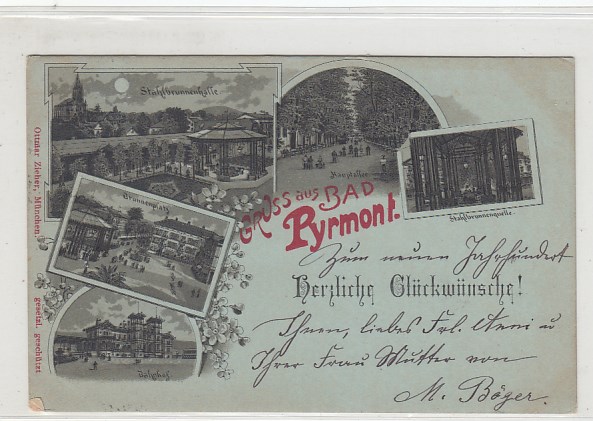 Stahlbrunnenhalle
Hauptallee
Gruss aus BAD
Pyrmont.
Stahlbrunnenquelle.
Brunnenplatz
Bahnhof
Ottmar Zieher, München. gesetzl. geschützt
Zum neuen Jahrhundert
Herzliche Glückwünsche!
Ihnen, liebes Frl. Aeni u
Ihrer Frau Mutter von
M. Böger.